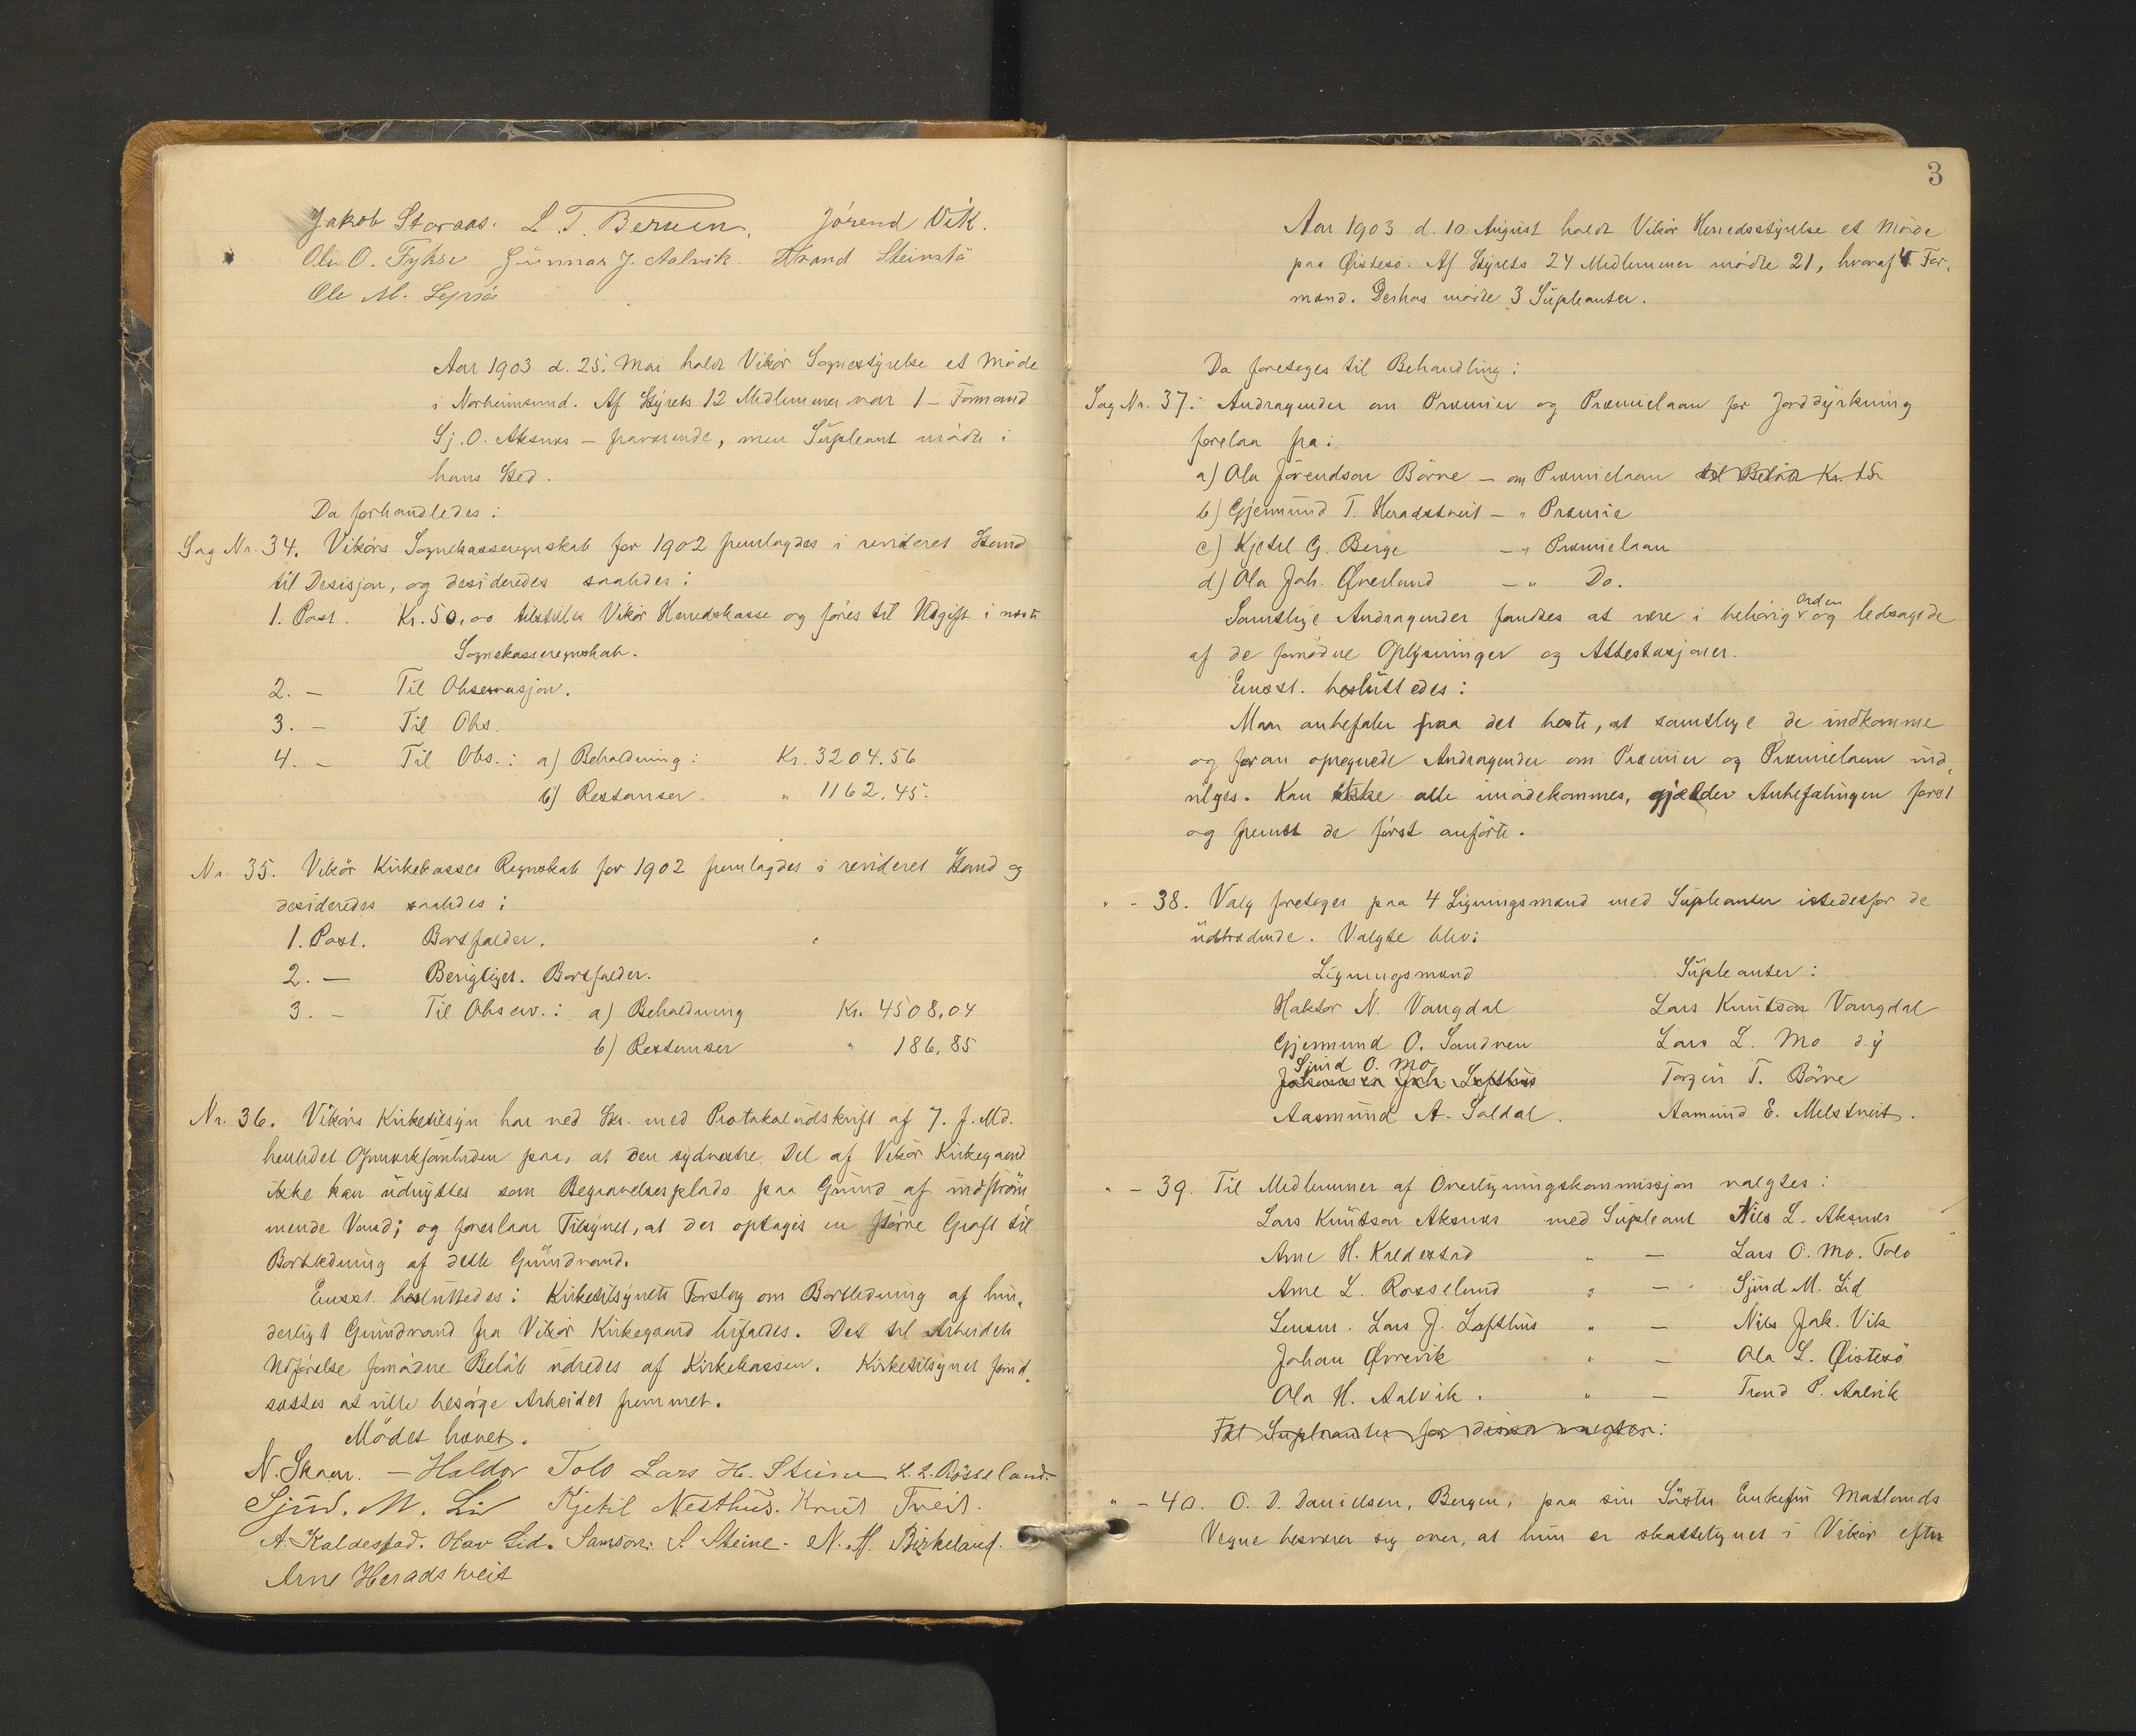 Jakob Storaas. L. T. Bersen. Jörend Vik.
Ola O. Fykse Gunnar J. Aalvik. Trond Steinstö
Ole M. Lepsö
Aar 1903 d. 25. Mai holdt Vikör Sognestyrelse et Möde
i Norheimsund. Af Styrets 12 Medlemmer var 1 – Formand
Sj. O. Aksnes – fraværende, men Supleant mödte i
hans Sted.
Da forhandledes:
Sag Nr. 34. Vikörs Sognekasseregnskab for 1902 fremlagdes i revideret Stand
til Desisjon, og desideredes saaledes:
1. Post. Kr. 50,00 tilstilles Vikör Herredskasse og föres til Udgift i næste
Sognekasseregnskab.
2. – Til Observasjon.
3. – Til Obs.
4. – Til Obs.: a) Beholdning: Kr. 3204.56
b) Restanser " 1162.45.
Nr. 35. Vikör Kirkekasses Regnskab for 1902 fremlagdes i revideret Stand og
desideredes saaledes:
1. Post. Bortfalder.
2. – Berigtiget. Bortfalder.
3. – Til Observ.: a) Beholdning Kr. 4508,04
b) Restanser " 186,85
Nr. 36. Vikörs Kirketilsyn har ved Skr. med Protokoludskrift af 7. f. Md.
henledet Opmærksomheden paa, at den sydvestre Del af Vikör Kirkegaard
ikke kan udnyttes som Begravelsesplads paa Grund af indström
mende Vand; og foreslaar Tilsynet, at der optages en större Gröft til
Bortledning af dette Grundvand.
Enst. besluttedes: Kirketilsynets Forslag om Bortledning af hin,
derligt Grundvand fra Vikör Kirkegaard bifaldes. Det til Arbeidets
Udförelse fornödne Belöb udredes af Kirkekassen. Kirketilsynet forud,
sættes at ville besörge Arbeidet fremmet.
Mödet hævet.
N. Skaar. – Haldor Tolo Lars H. Steine L. L. Rösseland.
Sjur. M. Lid Kjetil Nesthus. Knut Tveit.
A. Kaldestad. Olav Lid. Samson. S. Steine. N. M. Birkeland.
Arne Heradstveit
3
Aar 1903 d. 10. August holdt Vikör Herredsstyrelse et Möde
paa Östesö. Af Styrets 24 Medlemmer mödte 21, hvoraf 4 For,
mænd. Derhos mödte 3 Supleanter.
Da foretoges til Behandling:
Sag Nr. 37. Andragender om Præmier og Præmielaan for Jorddyrkning
forelaa fra:
a) Ola Jörendson Börve – om Præmielaan til Belöb Kr.
b) Gjermund T. Heradstveit – " Præmie
c) Kjetil G. Berge – " Præmielaan
d) Ola Joh. Överland – " Do.
Samtlige Andragender fandtes at være i behörig Orden og ledsagede
af de fornödne Oplysninger og Attestasjoner.
Enst. besluttedes:
Man anbefaler paa det beste, at samtlige de indkomne
og foran opregnede Andragender om Præmier og Præmielaan ind,
vilges. Kan ikke alle imödekommes, gjælder Anbefalingen först
og fremst de först anförte.
" – 38. Valg foretoges paa 4 Ligningsmænd med Supleanter istedetfor de
udtrædende. Valgte blev:
Ligningsmænd Supleanter:
Haktor N. Vangdal Lars Knutson Vangdal
Gjermund O. Sandven Lars L. Mo d.y
Sjurd O. Mo
Johannes Joh. Lofthus Torgeir T. Börve
Aasmund A. Soldal. Aamund E. Melstveit.
" – 39. Til Medlemmer af Overligningskommissjon valgtes:
Lars Knutson Aksnes med Supleant Nils L. Aksnes
Arne H. Kaldestad " – Lars O. Mo. Tolo
Arne L. Rosseland " – Sjurd M. Lid
Lensm. Lars J. Lofthus " – Nils Jak. Vik
Johan Övrevik " – Ola L. Östesö
Ola H. Aalvik. " – Trond P. Aalvik
Til Supleanter for disse valgtes:
" – 40. O. D. Danielsen, Bergen, paa sin Söster Enkefru Matlands
Vegne besværer sig over, at hun er skattelignet i Vikör efter